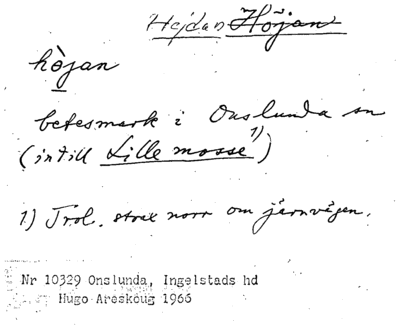 Hejdan Höjan
hòjan
betesmark i Onslunda sn
(intill Lille mosse 1))
1) Trol. strax norr om järnvägen.
Nr 10329 Onslunda, Ingelstads hd
Hugo Areskoug 1966